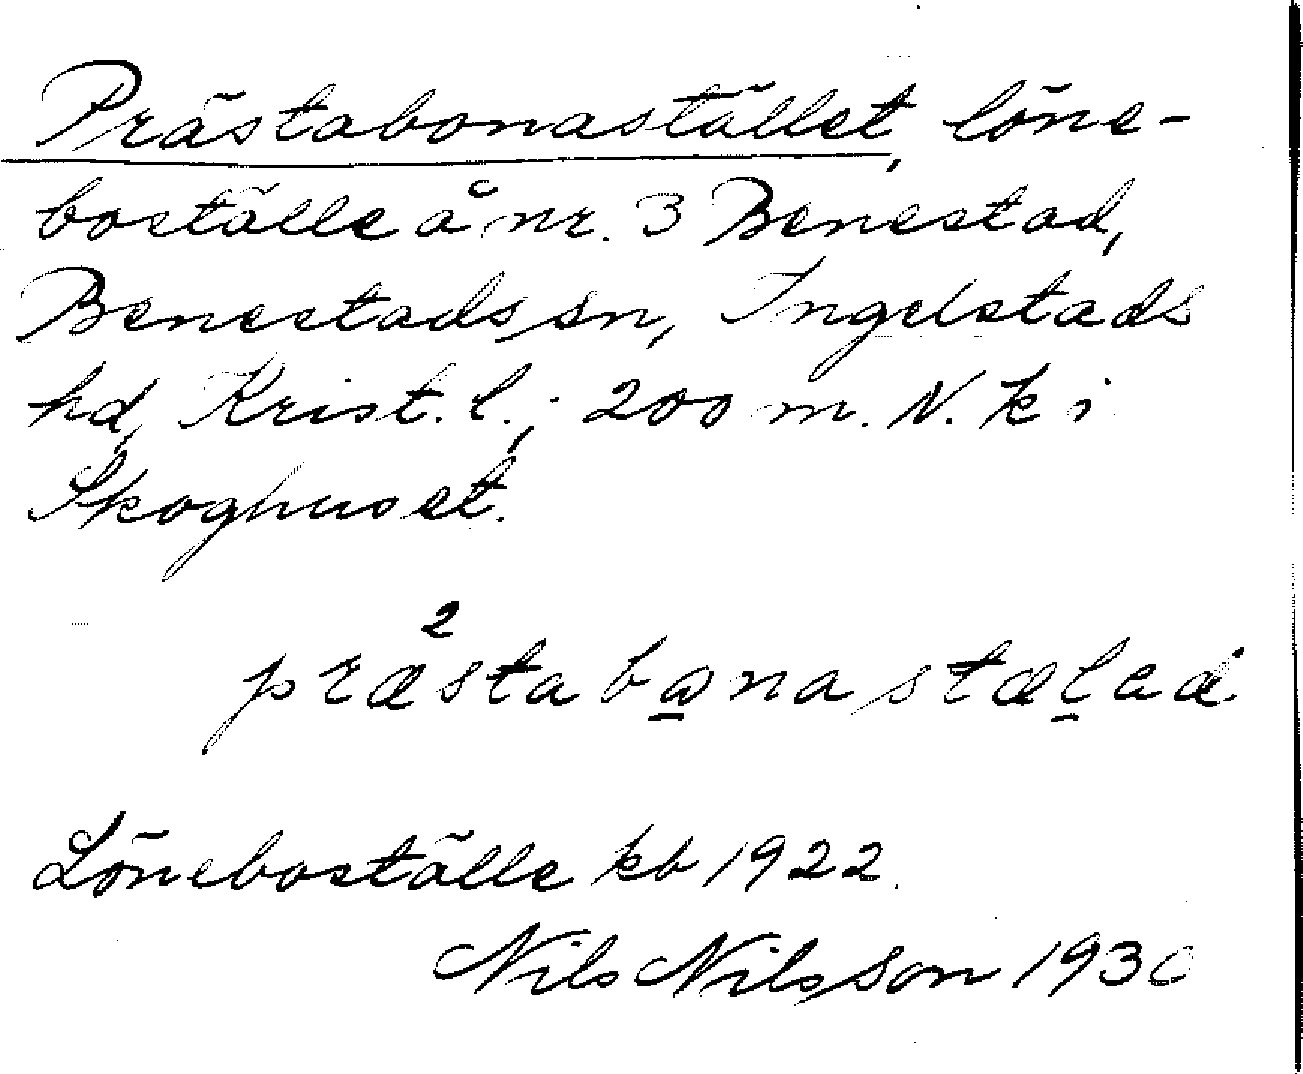 Prästabonastället, löne-
boställe å nr. 3 Benestad,
Benestads sn, Ingelstads
hd, Krist. l.; 200 m. N. k i
Skoghuset.
2
præstabo̱nastæḻad
Löneboställe kb 1922.
Nils Nilsson 1930